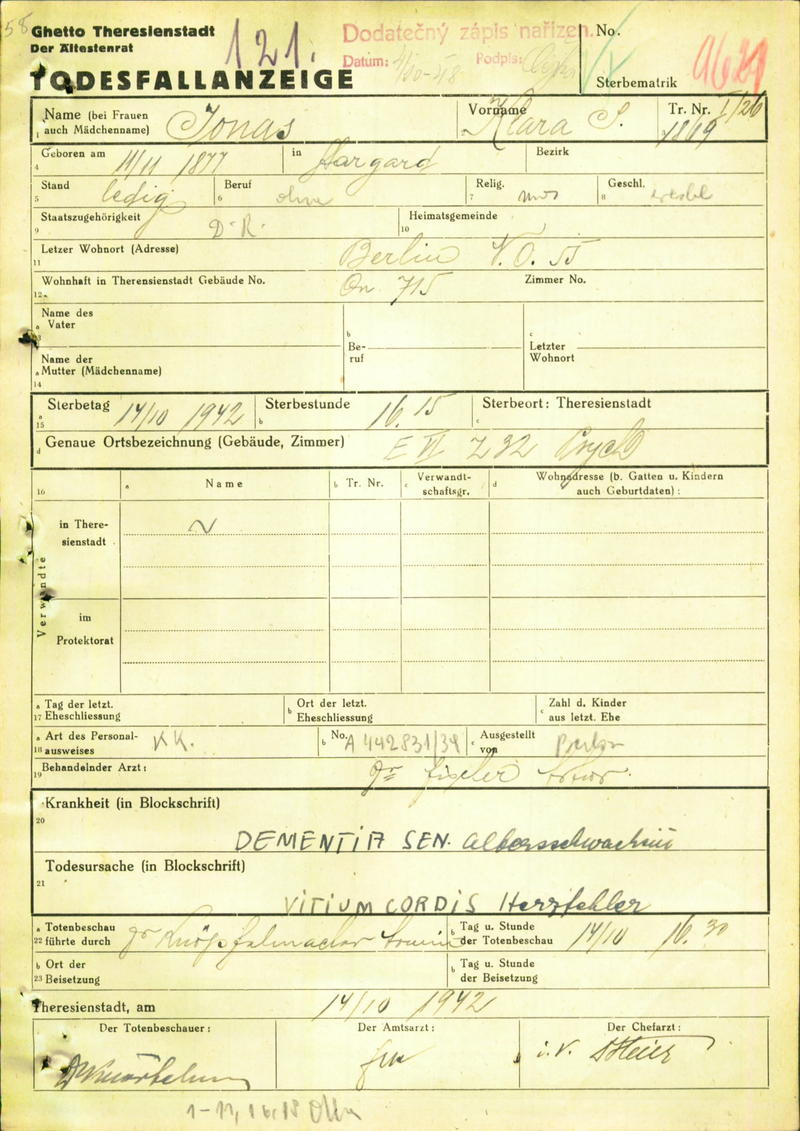 58
Ghetto Theresienstadt
Der Ältestenrat
121.
Dodatečný zápis nařízen.
Datum: Podpis:
No.
Sterbematrik
TODESFALLANZEIGE
Name (bei Frauen auch Mädchenname) Jonas
Vorname Klara S.
Tr. Nr. I/26
1 1819
4 Geboren am 11/11 1877 in Bezirk
5 Stand ledig 6 Beruf ohne 7 Relig. mos 8 Geschl.
9 Staatszugehörigkeit D.R. 10 Heimatsgemeinde
11 Letzer Wohnort (Adresse) Berlin N.O. 55
12 Wohnhaft in Therensienstadt Gebäude No. 715 Zimmer No.
Name des
a Vater
b Beruf
c Letzter Wohnort
Name der
a Mutter (Mädchenname)
14
15 a Sterbetag 14/10 1942 b Sterbestunde 16.15 c Sterbeort: Theresienstadt
d Genaue Ortsbezeichnung (Gebäude, Zimmer) E VI Z 32
16 a Name b Tr. Nr. c Verwandtschaftsgr. d Wohnadresse (b. Gatten u. Kindern auch Geburtdaten) :
Verwandte
in Theresienstadt
im Protektorat
17 a Tag der letzt. Eheschliessung b Ort der letzt. Eheschliessung c Zahl d. Kinder aus letzt. Ehe
18 a Art des Personalausweises KK. b No. A 442831/39 c Ausgestellt von Berlin
19 Behandelnder Arzt: Dr
Krankheit (in Blockschrift)
20
DEMENTIA SEN. Altersschwachsinn
Todesursache (in Blockschrift)
21
VITIUM CORDIS Herzfehler
22 a Totenbeschau führte durch Dr Knöpfelmacher b Tag u. Stunde der Totenbeschau 14/10 16.30
23 b Ort der Beisetzung b Tag u. Stunde der Beisetzung
Theresienstadt, am 14/10 1942
Der Totenbeschauer: Der Amtsarzt: Der Chefarzt:
i.V.